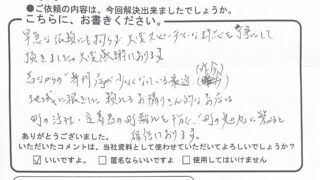 ●ご依頼の内容は、今回解決出来ましたでしょうか。
こちらに、お書きください。
早急な依頼にも拘らず 大変スピーディーな対応を して
頂きました。大変感謝しております。
専門店が少なくなっている最近 (昨今)
地域に根ざした 頼れるお隣りさん的なお店は
町の活性・定着
確信しております。
ありがとうございました。
いただいたコメントは、当社資料として使わせていただいてよろしいでしょうか?
☑ いいですよ。 □ 匿名ならいいですよ □ 使用してはいけません